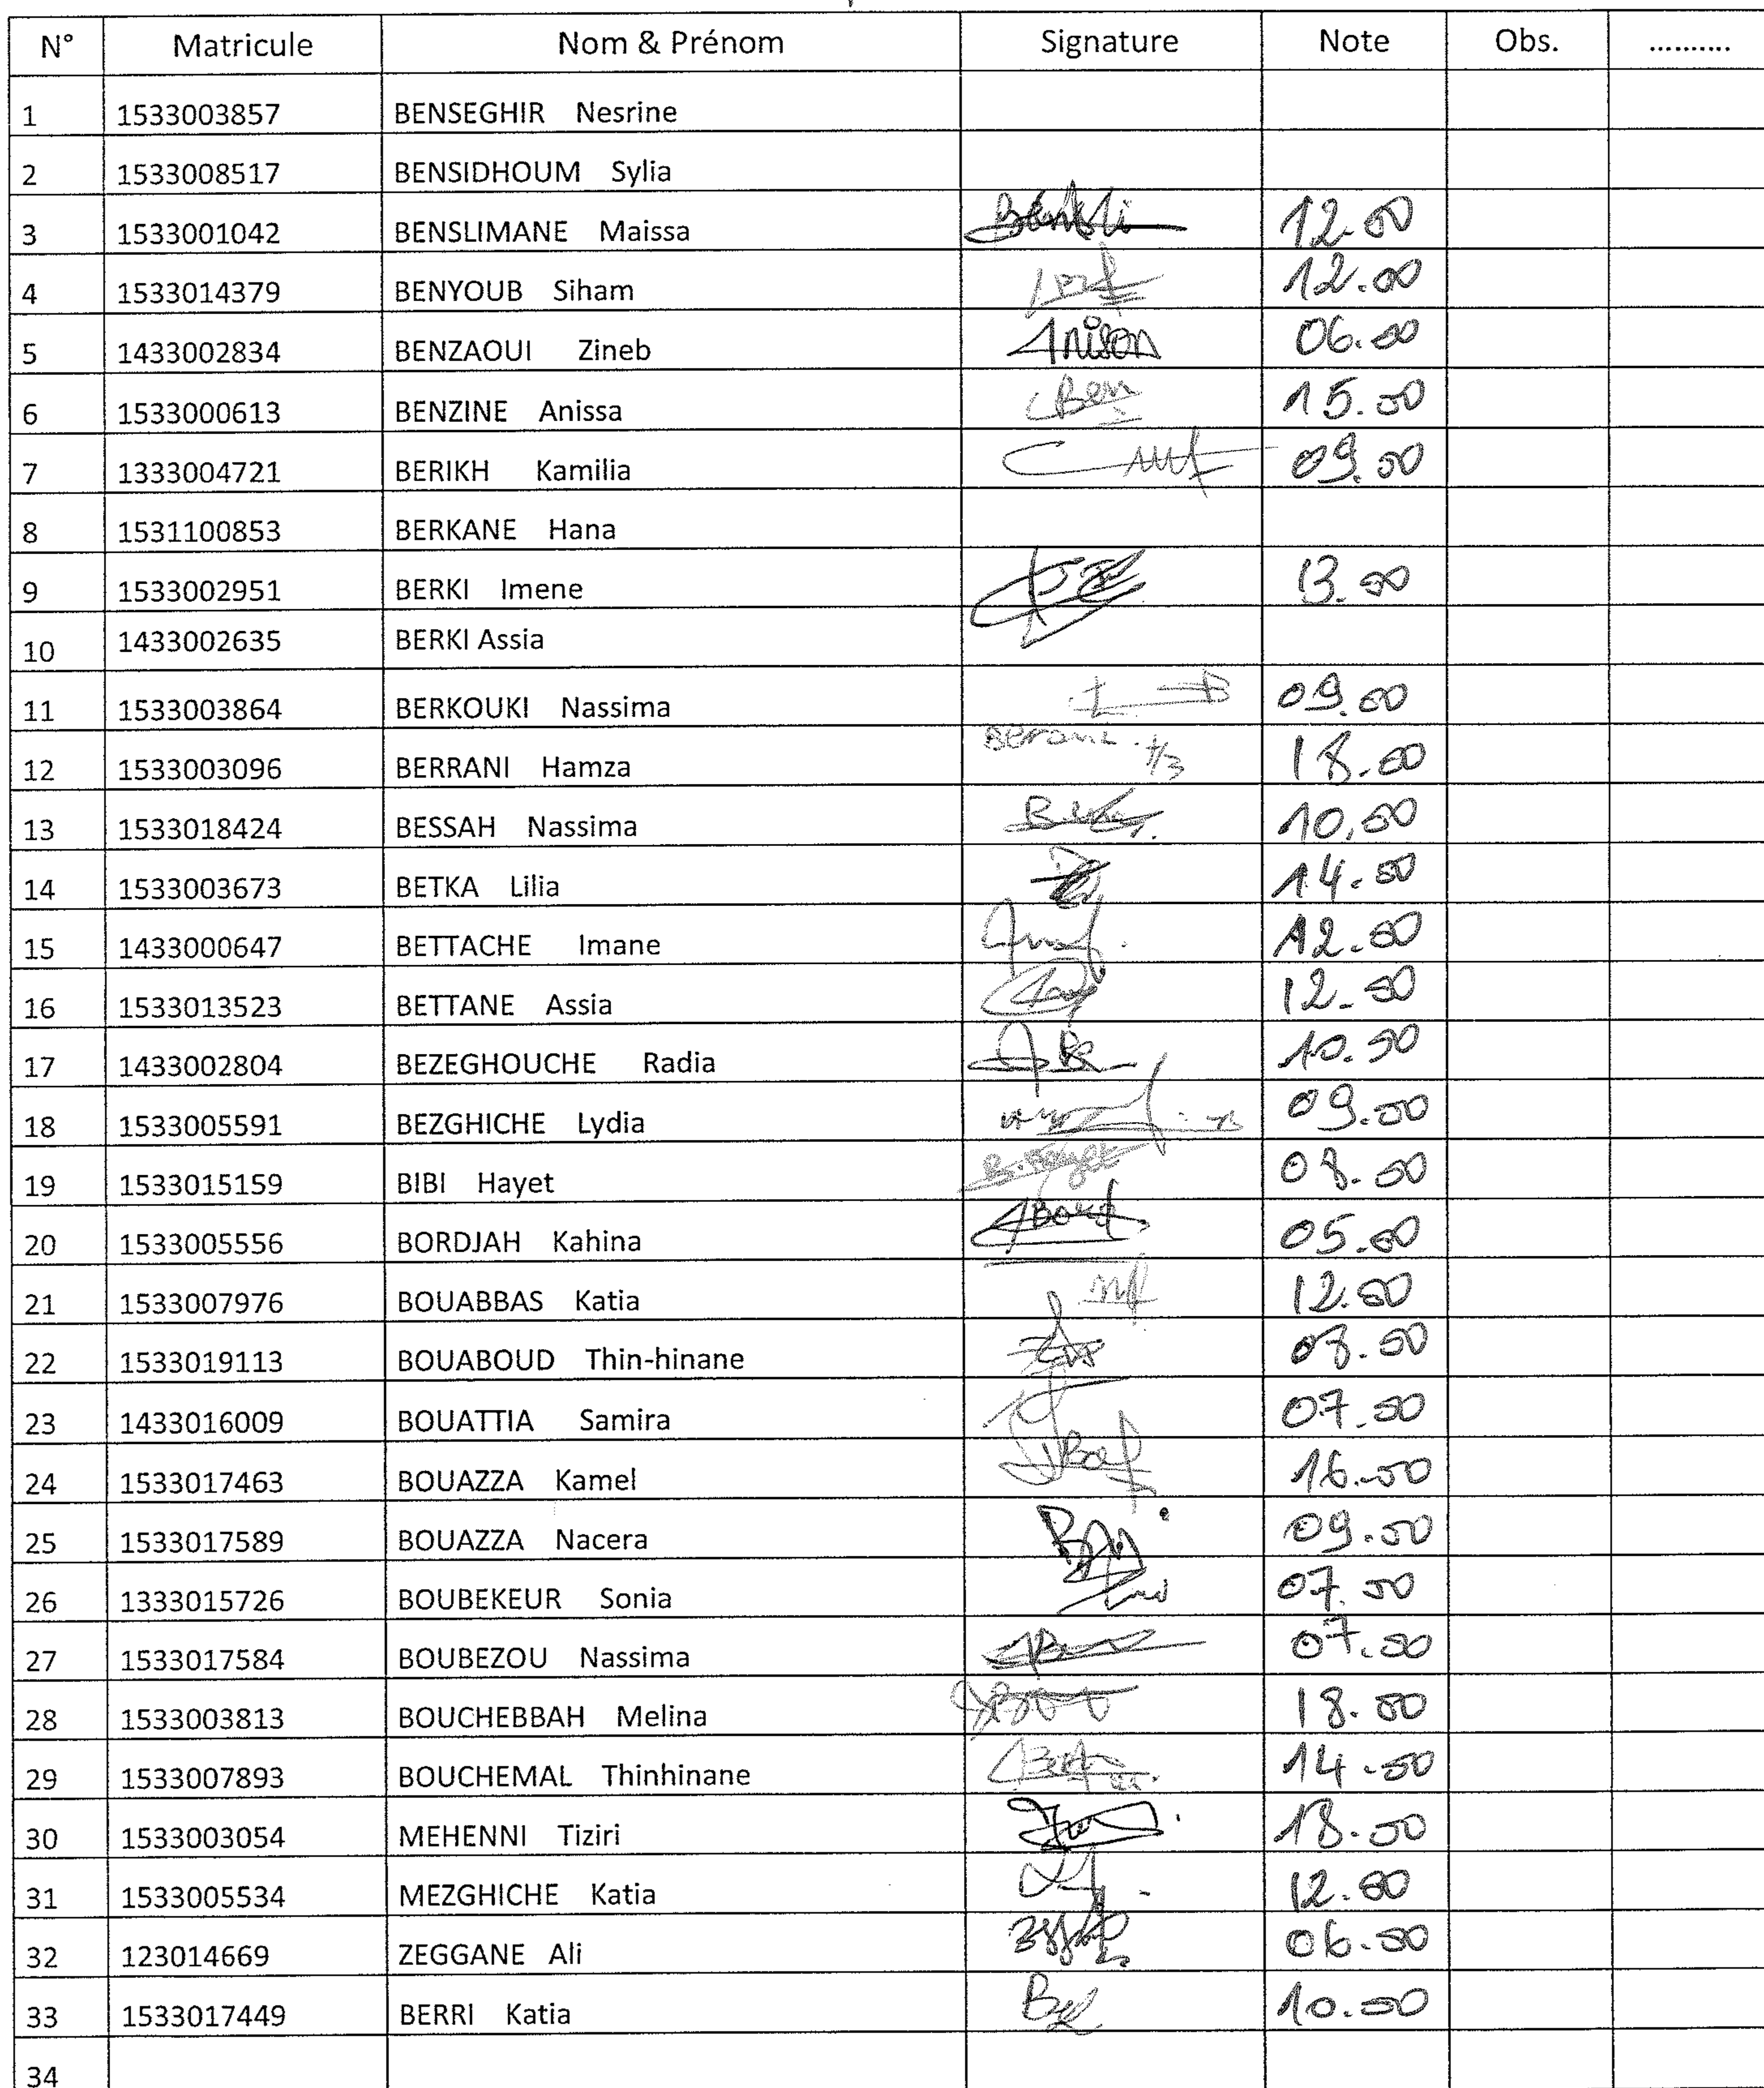 N° Matricule Nom & Prénom Signature Note Obs. ..........
1 1533003857 BENSEGHIR Nesrine
2 1533008517 BENSIDHOUM Sylia
3 1533001042 BENSLIMANE Maissa 12.00
4 1533014379 BENYOUB Siham 12.00
5 1433002834 BENZAOUI Zineb 06.00
6 1533000613 BENZINE Anissa Ben 15.00
7 1333004721 BERIKH Kamilia 09.00
8 1531100853 BERKANE Hana
9 1533002951 BERKI Imene 13.00
10 1433002635 BERKI Assia
11 1533003864 BERKOUKI Nassima 09.00
12 1533003096 BERRANI Hamza 18.00
13 1533018424 BESSAH Nassima 10,00
14 1533003673 BETKA Lilia 14.00
15 1433000647 BETTACHE Imane 12.00
16 1533013523 BETTANE Assia 12.00
17 1433002804 BEZEGHOUCHE Radia 10.00
18 1533005591 BEZGHICHE Lydia 09.00
19 1533015159 BIBI Hayet 08.00
20 1533005556 BORDJAH Kahina 05.00
21 1533007976 BOUABBAS Katia 12.00
22 1533019113 BOUABOUD Thin-hinane 08.00
23 1433016009 BOUATTIA Samira 07.00
24 1533017463 BOUAZZA Kamel 16.00
25 1533017589 BOUAZZA Nacera 09.00
26 1333015726 BOUBEKEUR Sonia 07.00
27 1533017584 BOUBEZOU Nassima 07.00
28 1533003813 BOUCHEBBAH Melina 18.00
29 1533007893 BOUCHEMAL Thinhinane 14.00
30 1533003054 MEHENNI Tiziri 18.00
31 1533005534 MEZGHICHE Katia 12.00
32 123014669 ZEGGANE Ali 06.00
33 1533017449 BERRI Katia 10.00
34